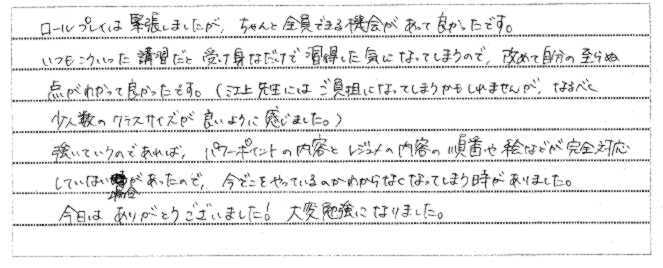 ロールプレイは緊張しましたが、ちゃんと全員できる機会があって良かったです。
いつもこういった講習だと受け身なだけで習得した気になってしまうので、改めて自分の至らぬ
点がわかって良かったです。(江上先生にはご負担になってしまうかもしれませんが、なるべく
少人数のクラスサイズが良いように感じました。)
強いていうのであれば、パワーポイントの内容とレジュメの内容の順番や絵などが完全対応
していない場合があったので、今どこをやっているのかわからなくなってしまう時がありました。
今日はありがとうございました!大変勉強になりました。